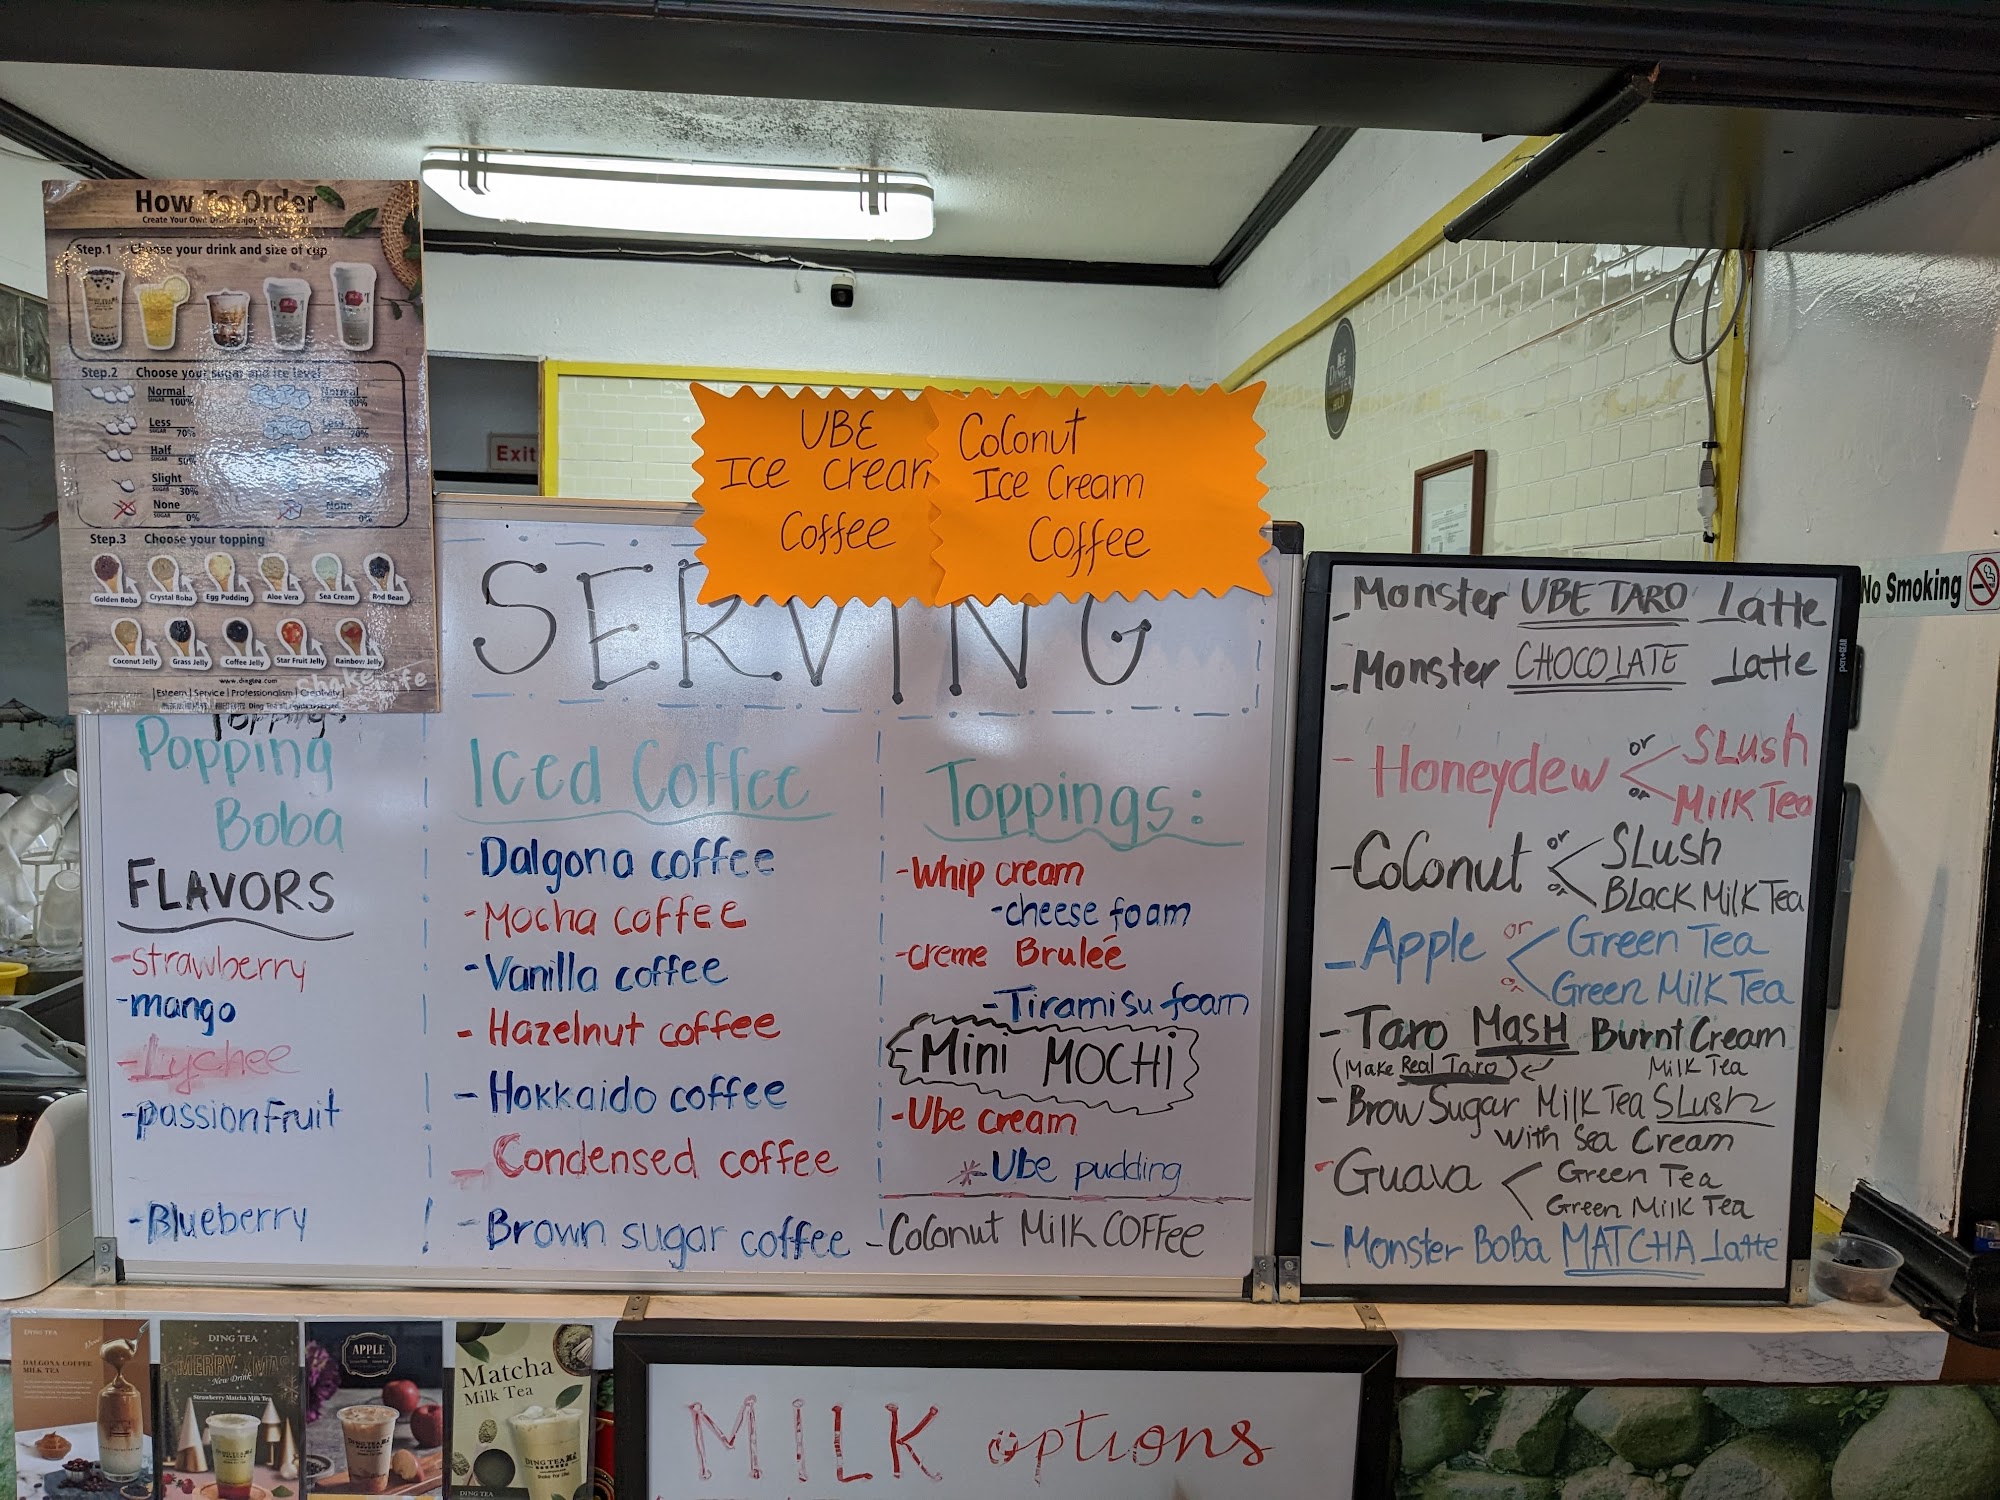 How To Order
Create Your Own
Step.1 Choose your drink and size of cup
Step.2 Choose your sugar and ice level
Normal
SUGAR 100%
Normal
100%
Less
SUGAR 70%
Less
70%
Half
SUGAR 50%
Slight
SUGAR 30%
None
SUGAR 0%
None
0%
Step.3 Choose your topping
Golden Boba
Crystal Boba
Egg Pudding
Aloe Vera
Sea Cream
Red Bean
Coconut Jelly
Grass Jelly
Coffee Jelly
Star Fruit Jelly
Rainbow Jelly
www.dingtea.com
| Esteem | Service | Professionalism | Creativity |
Shake Life
Exit
UBE
Ice cream
Coffee
Coconut
Ice Cream
Coffee
No Smoking
SERVING
Topping:
Popping
Boba
FLAVORS
-strawberry
-mango
-Lychee
-passionfruit
-Blueberry
Iced Coffee
-Dalgona coffee
-Mocha coffee
-Vanilla coffee
- Hazelnut coffee
- Hokkaido coffee
- Condensed coffee
- Brown sugar coffee
Toppings:
-Whip cream
-cheese foam
-creme Brulée
-Tiramisu foam
-Mini MOCHi
-Ube cream
*-Ube pudding
-Coconut Milk COFFee
- Monster UBE TARO Latte
- Monster CHOCOLATE Latte
- Honeydew or SLush
or Milk Tea
-Coconut or SLush
or BLack Milk Tea
- Apple or Green Tea
or Green Milk Tea
- Taro MasH Burnt Cream
(Make Real Taro) Milk Tea
- Brow Sugar Milk Tea SLush
with sea Cream
-Guava Green Tea
Green Milk Tea
- Monster BoBa MATCHA Latte
DING TEA
DALGONA COFFEE
MILK TEA
DING TEA
MERRY XMAS
New Drink
Strawberry Matcha Milk Tea
APPLE
Matcha
Milk Tea
DING TEA
DING TEA
MILK options